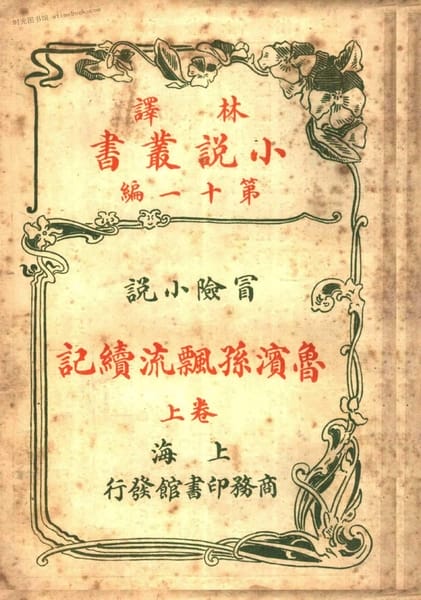 时光图书馆 - stimebook.com
林譯
小說叢書
第十一編
冒險小說
魯濱孫飄流續記
卷上
上海
商務印書館發行